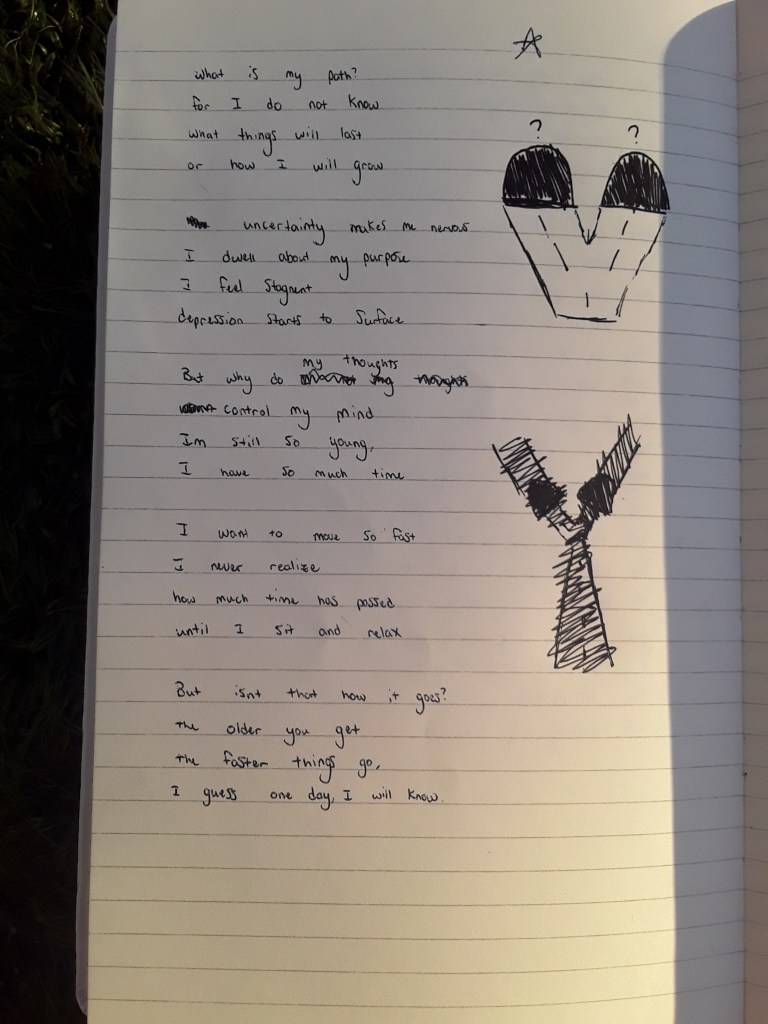 what is my path?
for I do not know
what things will last
or how I will grow
uncertainty makes me nervous
I dwell about my purpose
I feel Stagnent
depression starts to Surface
But why do my thoughts
control my mind
Im still so young,
I have so much time
I want to move so fast
I never realize
how much time has passed
until I sit and relax
But isnt that how it goes?
the older you get
the faster things go,
I guess one day, I will know.
? ?